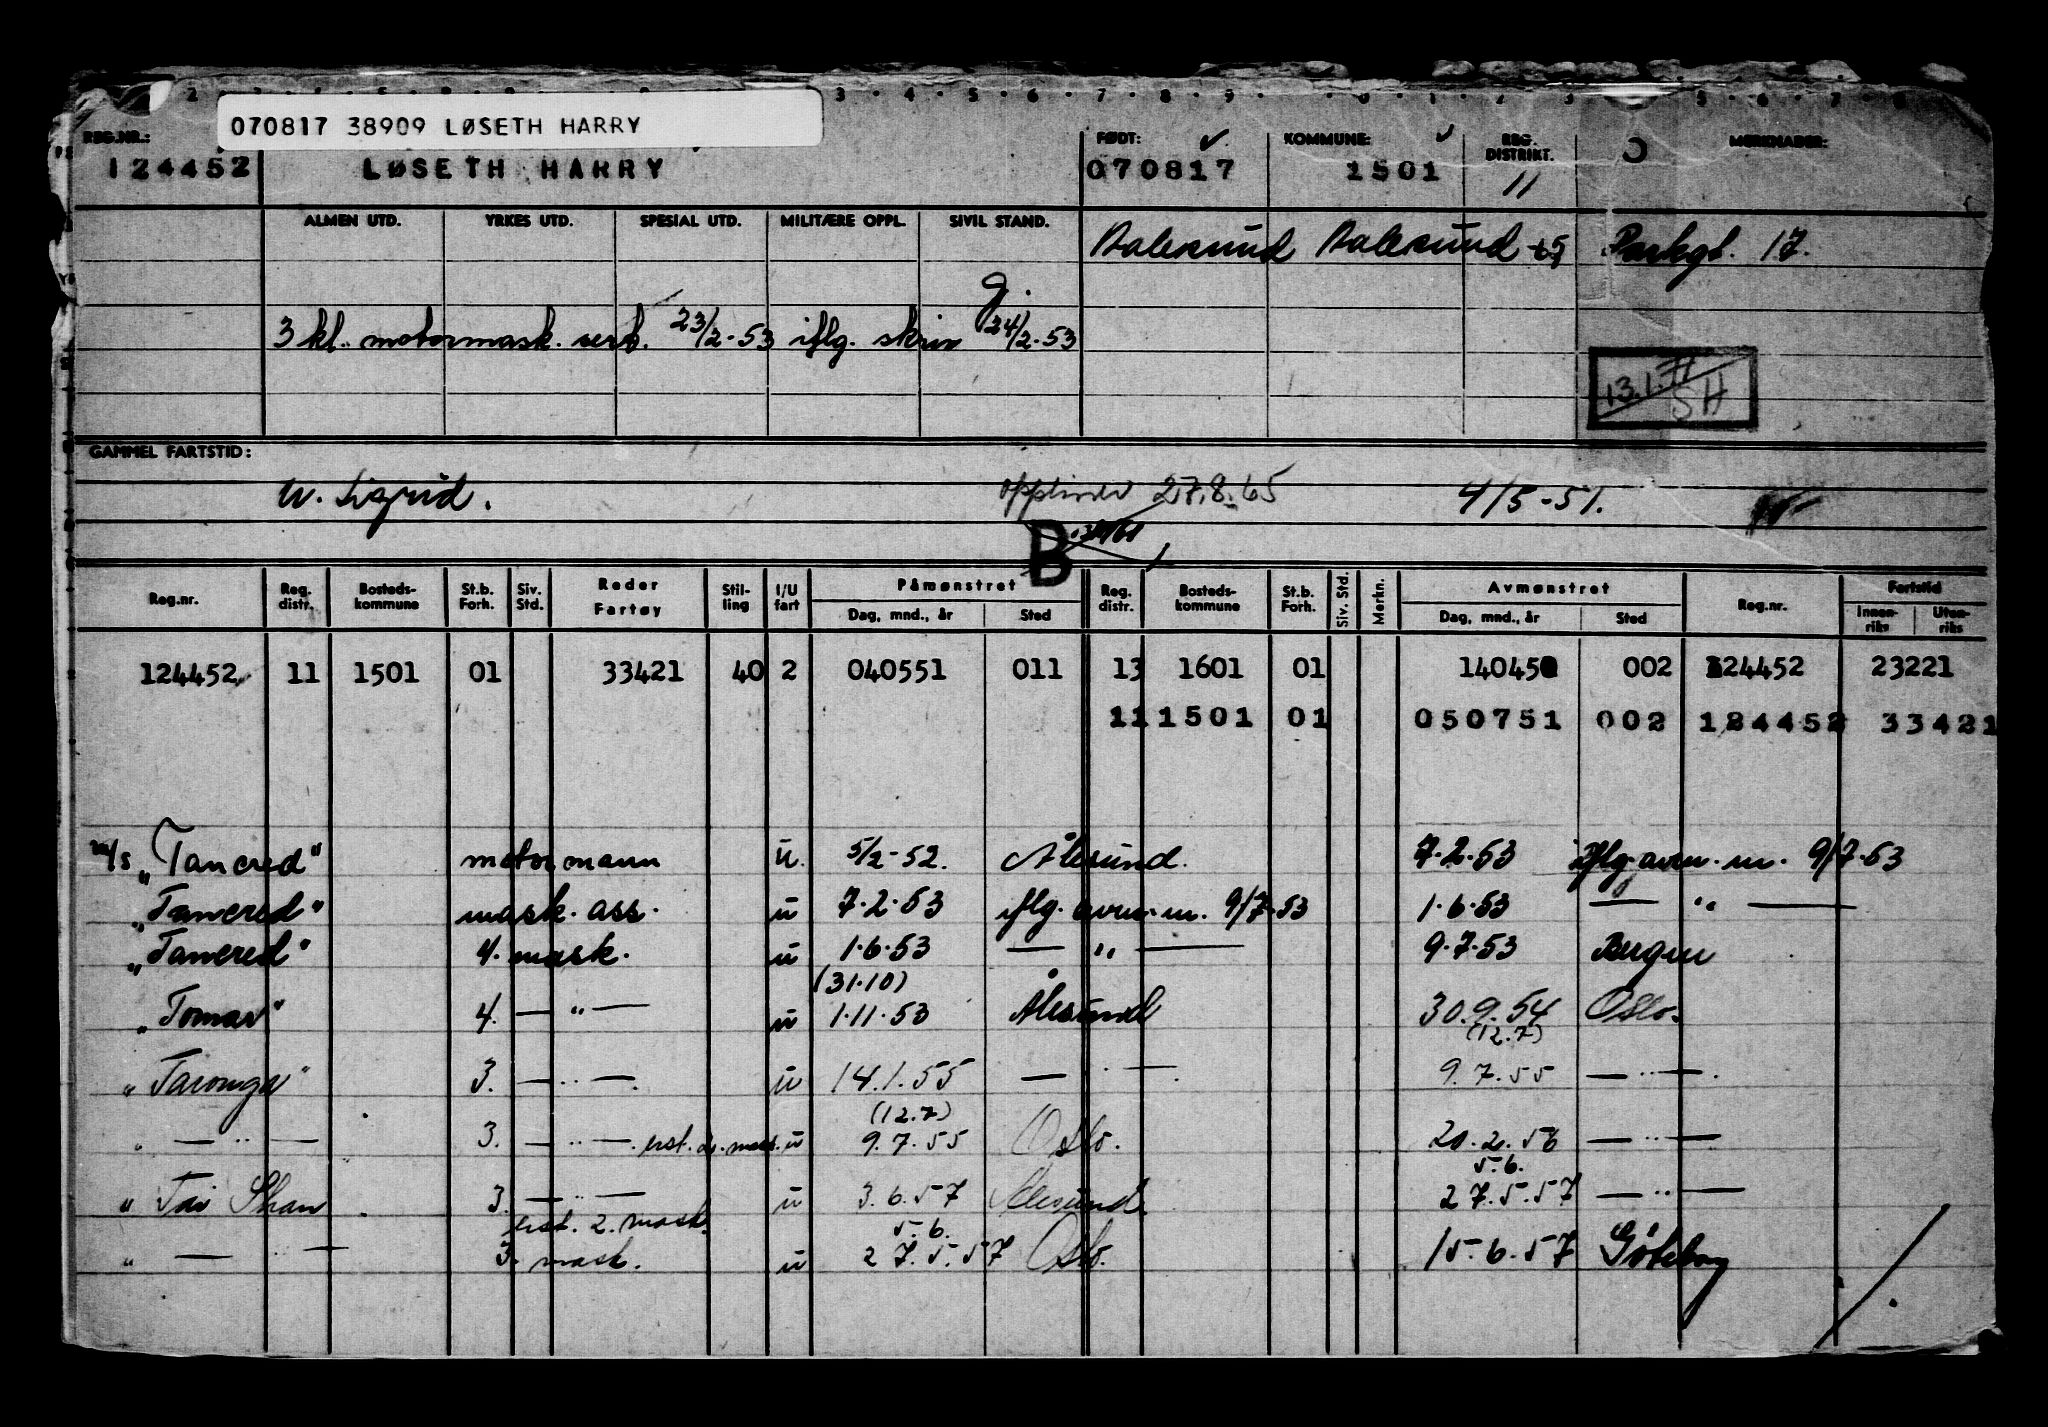 070817 38909 LØSETH HARRY
REG.NR.: FØDT: KOMMUNE: REG. DISTRIKT. MERKNADER:
124452 LØSETH HARRY 070817 1501 11
ALMEN UTD. YRKES UTD. SPESIAL UTD. MILITÆRE OPPL. SIVIL STAND.
Aalesund Aalesund Parkgt. 17.
g.
3 kl. motormask. sert. 23/2-53 iflg. skriv 24/2-53
13.1.71
SH
GAMMEL FARTSTID:
u. Sigrid. 27.8.65 4/5-51.
B
Reg.nr. Reg. distr. Bosteds-kommune St.b. Forh. Siv. Std. Reder Fartøy Stil-ling I/U fart Påmønstret Reg. distr. Bosteds-kommune St.b. Forh. Siv. Std. Merkn. Avmønstret Reg.nr. Fartstid
Dag, mnd., år Sted Dag, mnd., år Sted Innen-riks Uten-riks
124452 11 1501 01 33421 40 2 040551 011 13 1601 01 002 124452 23221
11 1501 01 050751 002 124452 33421
m/s "Tancred" motormann u. 5/2-52. Ålesund. 7.2.53 iflg. avm. m. 9/7-53
"Tancred" mask. ass. u 7.2.53 iflg. avm. m. 9/7-53 1.6.53 — " —
"Tancred" 4. mask. u 1.6.53 — " — 9.7.53 Bergen
(31.10)
"Tomar" 4. — " — u 1.11.53 Ålesund 30.9.54 Oslo.
(12.7)
"Taronga" 3. — " —. u 14.1.55 — " —. 9.7.55 — " —.
(12.7)
" — " — 3. — " —. erst. 2. mask. u 9.7.55 Oslo. 20.2.56 — " —
5.6.
" Tai Shan 3. — " — u 3.6.57 Ålesund. 27.5.57 — " —
erst. 2. mask. 5.6.
" — " — 3. mask. u 27.5.57 Oslo. 15.6.57 Göteborg